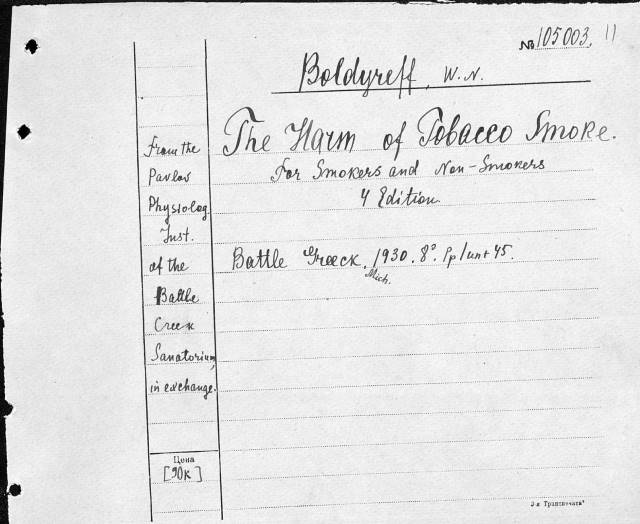 № 105003. 11
Boldyreff, W.N.
The Harm of Tobacco Smoke.
For Smokers and Non-Smokers
4 Edition
Battle Greeck. 1930. 8°. Pp 45.
Mich.
From the
Pavlov
Physiolog.
Inst.
of the
Battle
Creek
Sanatorium,
in exchange.
Цена
[90к]